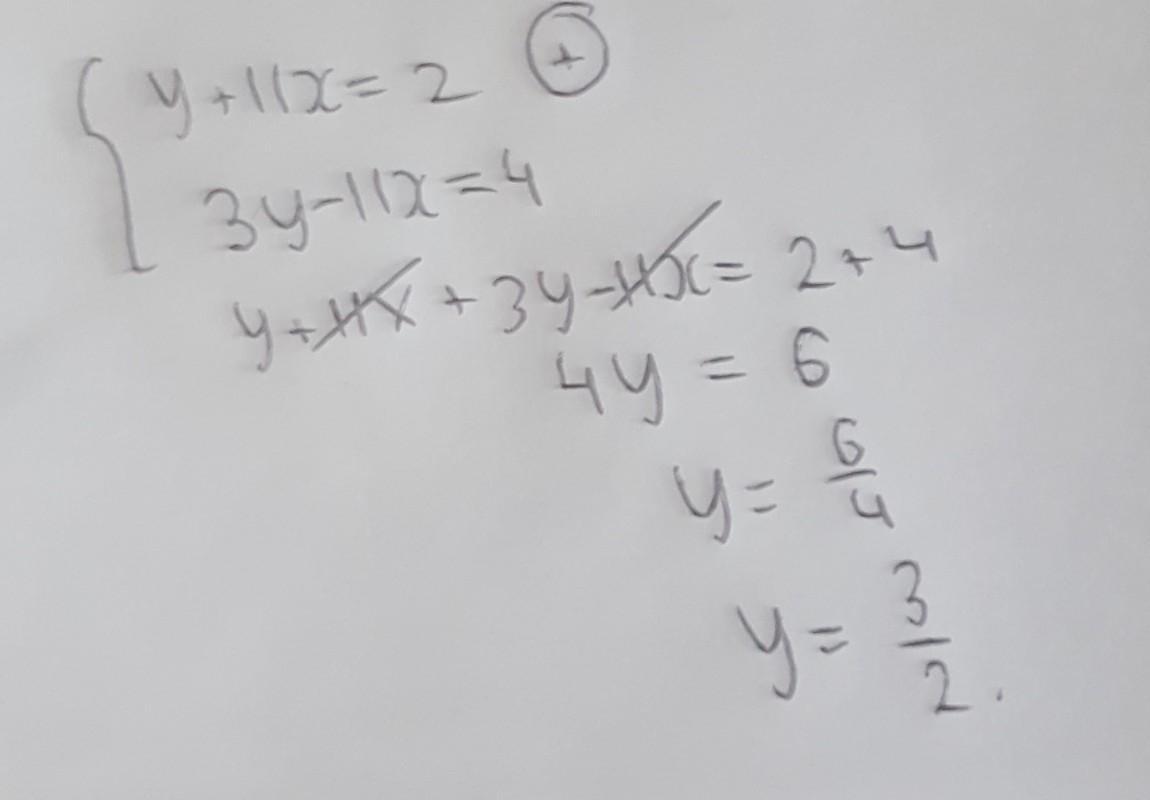 y + 11x = 2 ⊕
3y - 11x = 4
y + 11x + 3y - 11x = 2 + 4
4y = 6
y = 6/4
y = 3/2.